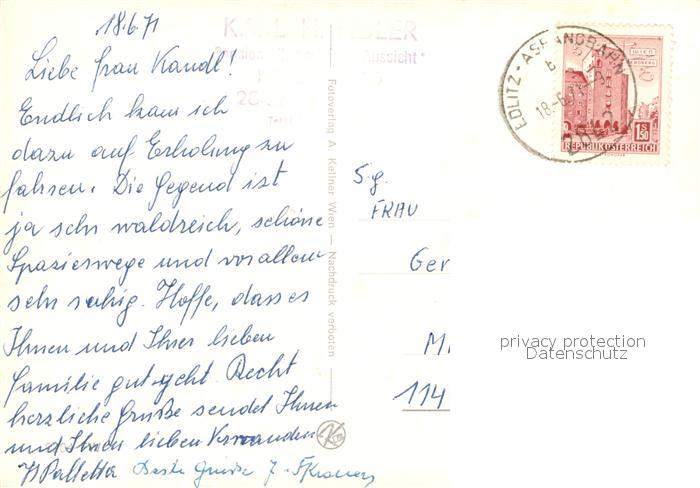 18.6.71
Liebe Frau Kandl!
Endlich kam ich
dazu auf Erholung zu
fahren. Die Gegend ist
ja sehr waldreich, schöne
Spazierwege und vor allem
sehr ruhig. Hoffe, dass es
Ihnen und Ihrer lieben
Familie gut geht. Recht
herzliche Grüße sendet Ihnen
und Ihren lieben Verwandten
Palletta Beste Grüße
Fotoverlag A. Kellner Wien — Nachdruck verboten
KARL H
Aussicht"
EDLITZ-ASPANGBAHN
18.-6.71
2842
WIEN
ERDBERG
1.50
REPUBLIK ÖSTERREICH
S.g.
FRAU
Ger
M
114
privacy protection
Datenschutz